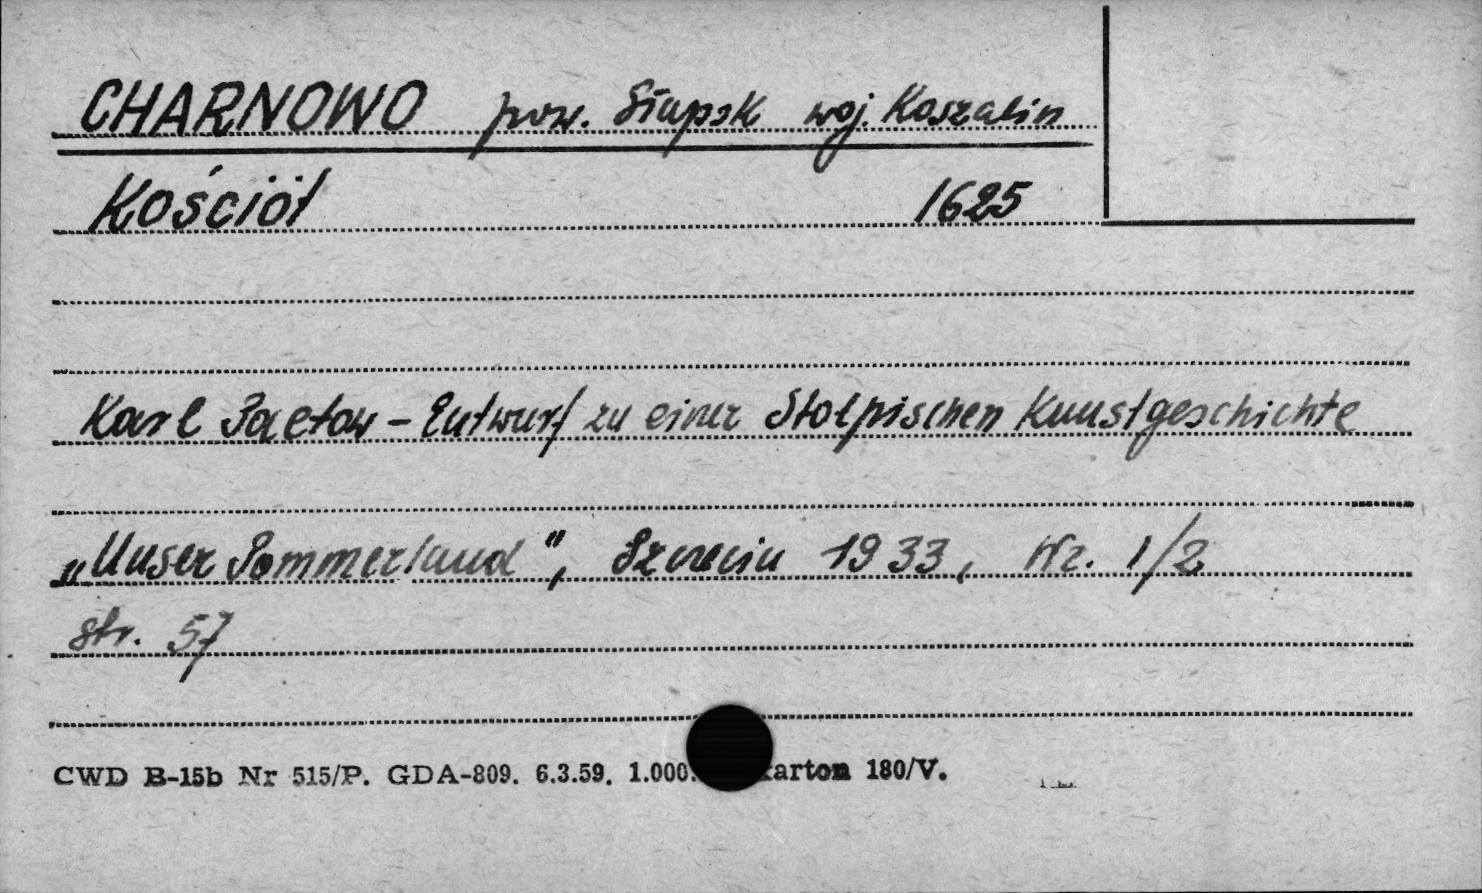 CHARNOWO pow. Słupsk woj. Koszalin
Kościół 1625
Karl Paetow - Entwurf zu einer Stolpischen Kunstgeschichte
„Unser Pommerland", Szczecin 1933, Nr. 1/2
str. 57
CWD B-15b Nr 515/P. GDA-809. 6.3.59. 1.000. karton 180/V.